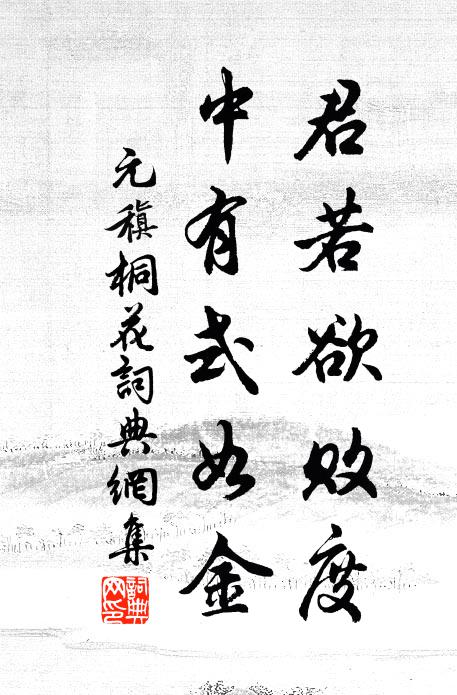 君若欲败度
中有式如金
元稹桐花詞典網集
詞典网印